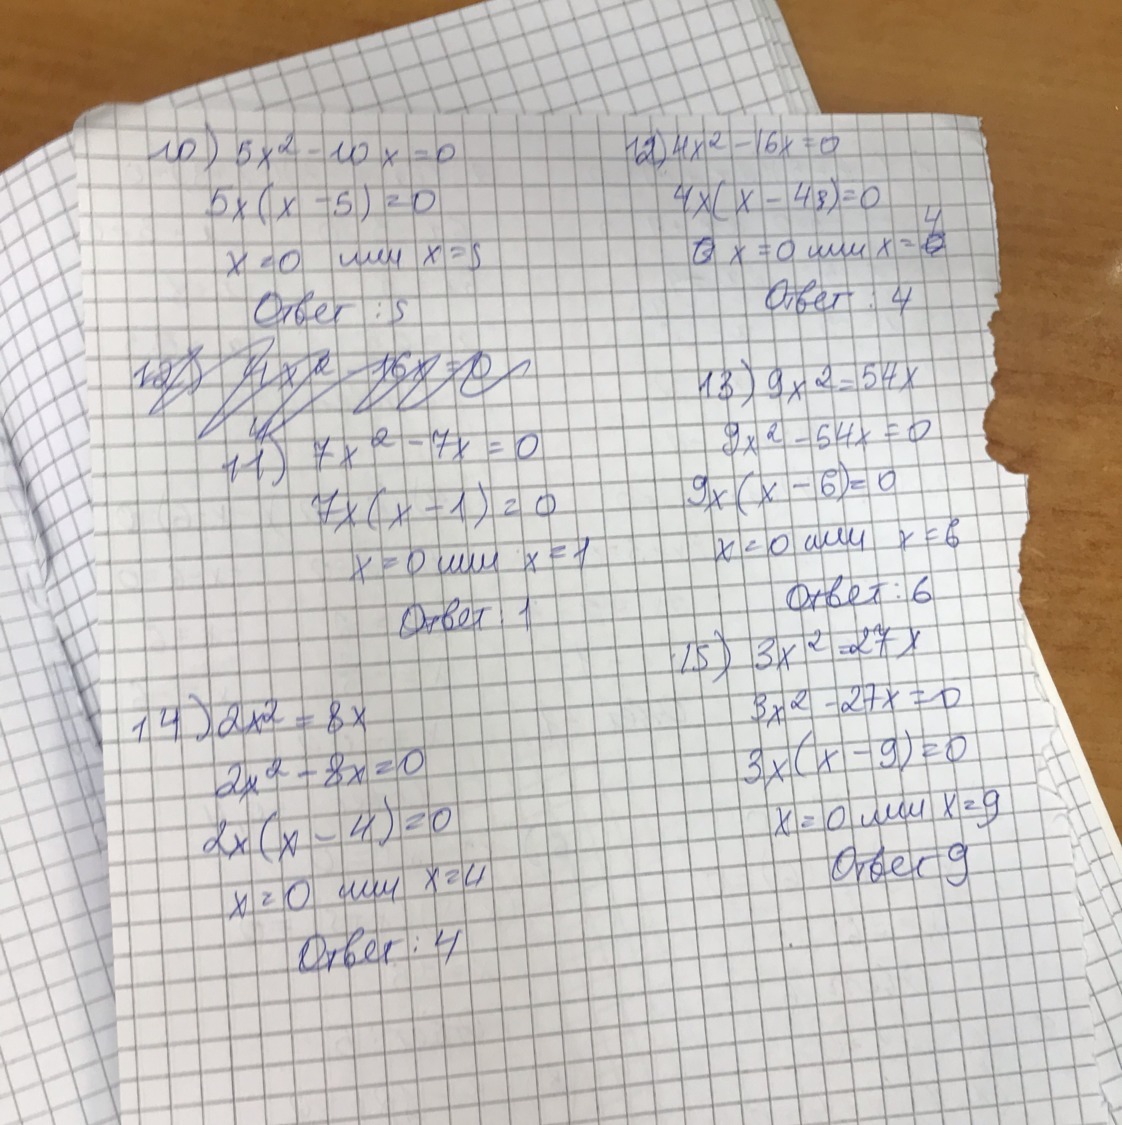 10) 5x² - 10x = 0
5x(x - 5) = 0
x = 0 или x = 5
Ответ : 5
12) 4x² - 16x = 0
11) 7x² - 7x = 0
7x(x - 1) = 0
x = 0 или x = 1
Ответ : 1
14) 2x² = 8x
2x² - 8x = 0
2x(x - 4) = 0
x = 0 или x = 4
Ответ : 4
12) 4x² - 16x = 0
4x(x - 4) = 0
x = 0 или x = 4
Ответ : 4
13) 9x² = 54x
9x² - 54x = 0
9x(x - 6) = 0
x = 0 или x = 6
Ответ : 6
15) 3x² = 27x
3x² - 27x = 0
3x(x - 9) = 0
x = 0 или x = 9
Ответ 9